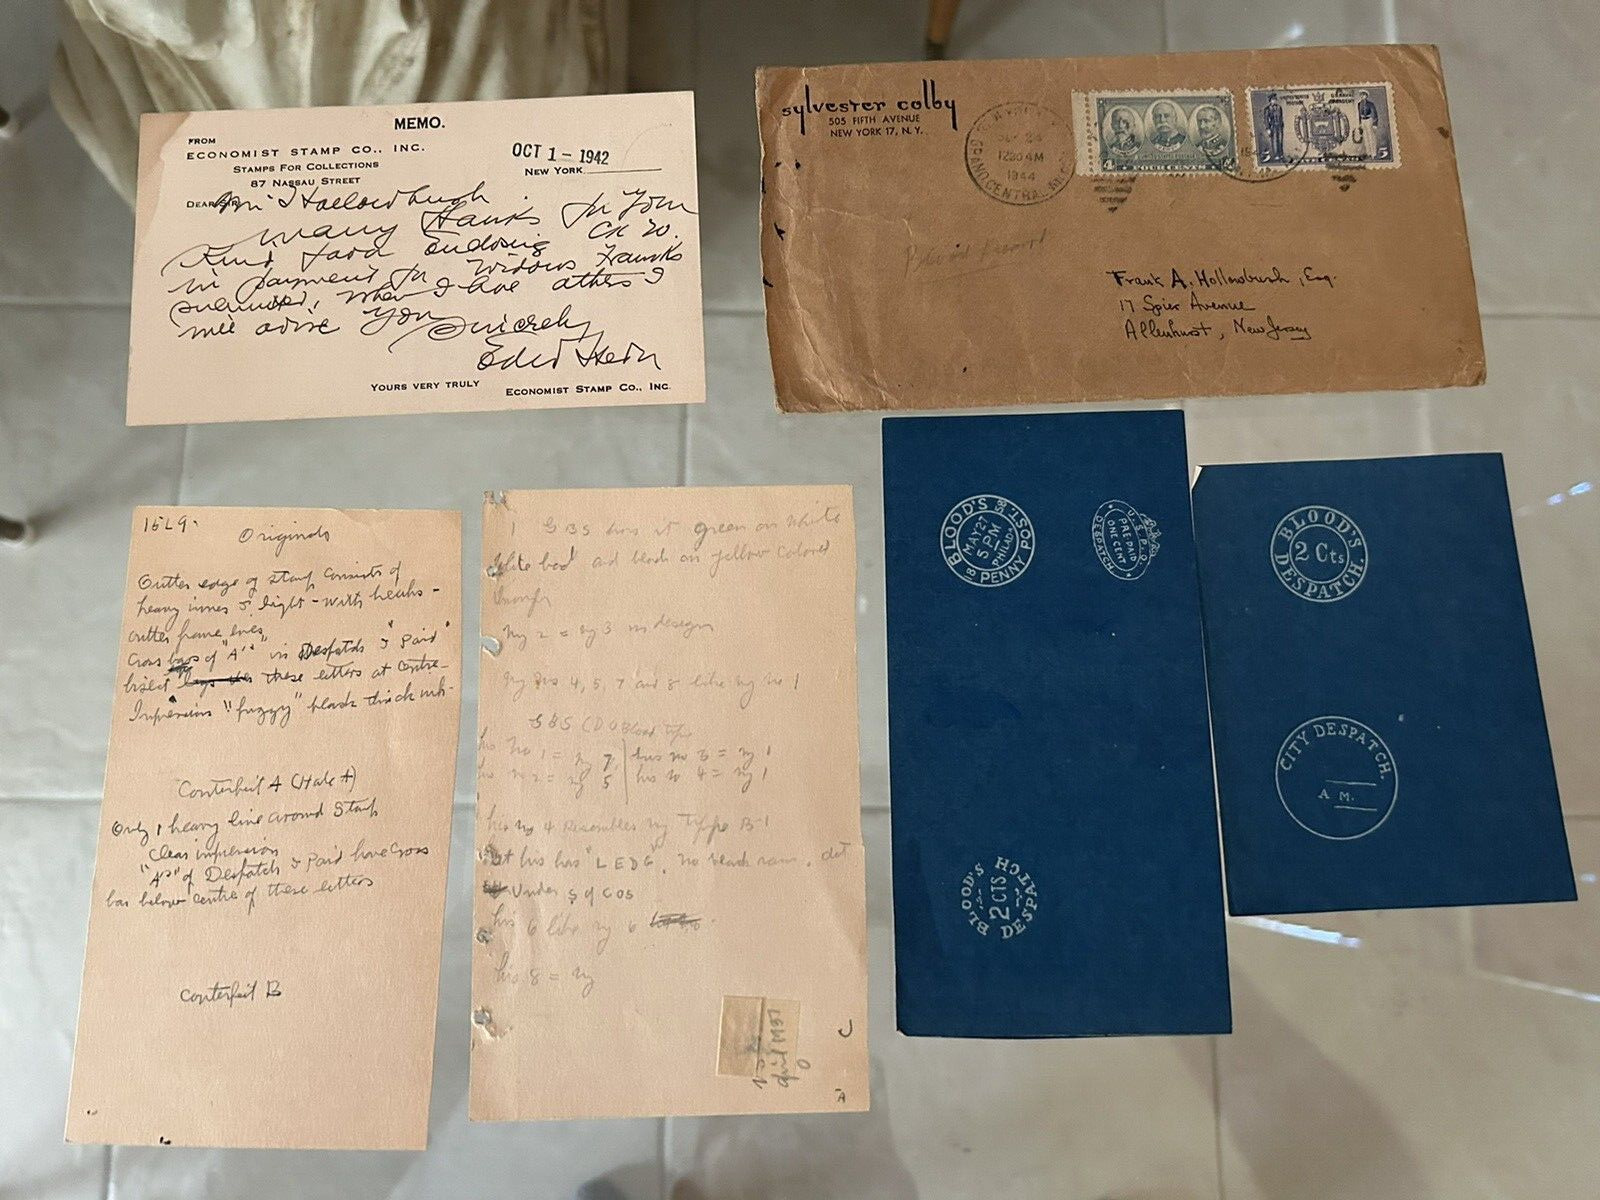 MEMO.
FROM
ECONOMIST STAMP CO., INC.
STAMPS FOR COLLECTIONS
87 NASSAU STREET
OCT 1 - 1942
NEW YORK
DEAR SIR
Mr Hollowbush
Many thanks for your
kind favor enclosing CK 20.
in payment for Widows Franks
when I have others I
will advise you
Sincerely
YOURS VERY TRULY ECONOMIST STAMP CO., INC.
sylvester colby
505 FIFTH AVENUE
NEW YORK 17, N.Y.
1230 AM
1944
GRAND CENTRAL
4
5 5
Blood
Frank A. Hollowbush, Esq.
17 Spier Avenue
Allenhurst, New Jersey
15L9.
Originals
Outter edge of stamp consists of
heavy inner & light - with
outter frame lines
Cross bars of "A's" in Despatch & "Paid"
bisect these letters at centre-
Impression "fuzzy" black thick ink-
Conterfeit A (Hale A)
Only 1 heavy line around Stamp
Clear impression
"A's" of Despatch & Paid have cross
bar below centre of these letters
Conterfeit B
1 SBS has it green on white
and black on yellow colored
my 2 = my 3 in design
my nos 4, 5 7 and 8 like my no 1
his no 1 = my 7, his no 3 = my 1
his no 2 = my 5 his no 4 = my 1
his no 4 Resembles my Type B-1
but his has "LEDG",
Under S of COS
his 6 like my 6
his 8 = my
April 1937
C
A
BLOOD'S PENNY POST.
MAY 27
5 PM
PHILADA
18 58
U.S.P.O.
PRE-PAID
ONE CENT
DESPATCH
BLOOD'S
2 CTS
DESPATCH
BLOOD'S
2 Cts
DESPATCH.
CITY DESPATCH.
A M.